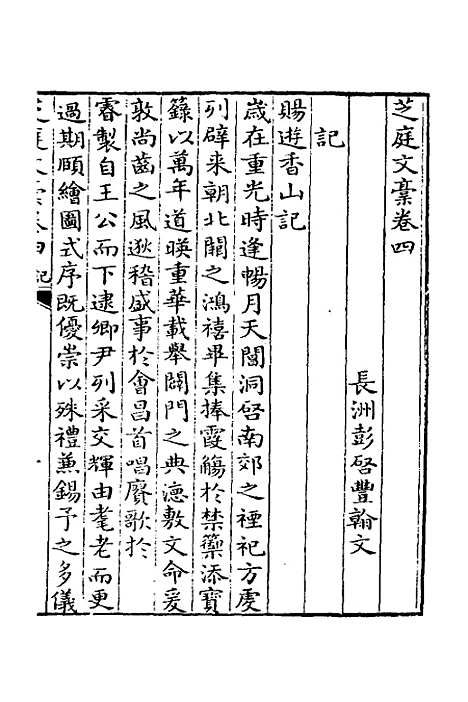 芝庭文稾卷四
長洲彭啓豐翰文
記
賜遊香山記
歲在重光時逢暢月天閶洞啓南郊之禋祀方虔
列辟来朝北闕之鴻禧畢集捧霞觴於禁籞添寶
籙以萬年道暎重華載舉闢門之典德敷文命爰
敦尚齒之風逖稽盛事於會昌首唱賡歌於
睿製自王公而下逮卿尹列采交輝由耄老而更
過期頤繪圖式序既優崇以殊禮蒹錫予之多儀
芝庭文稾卷四 記
一